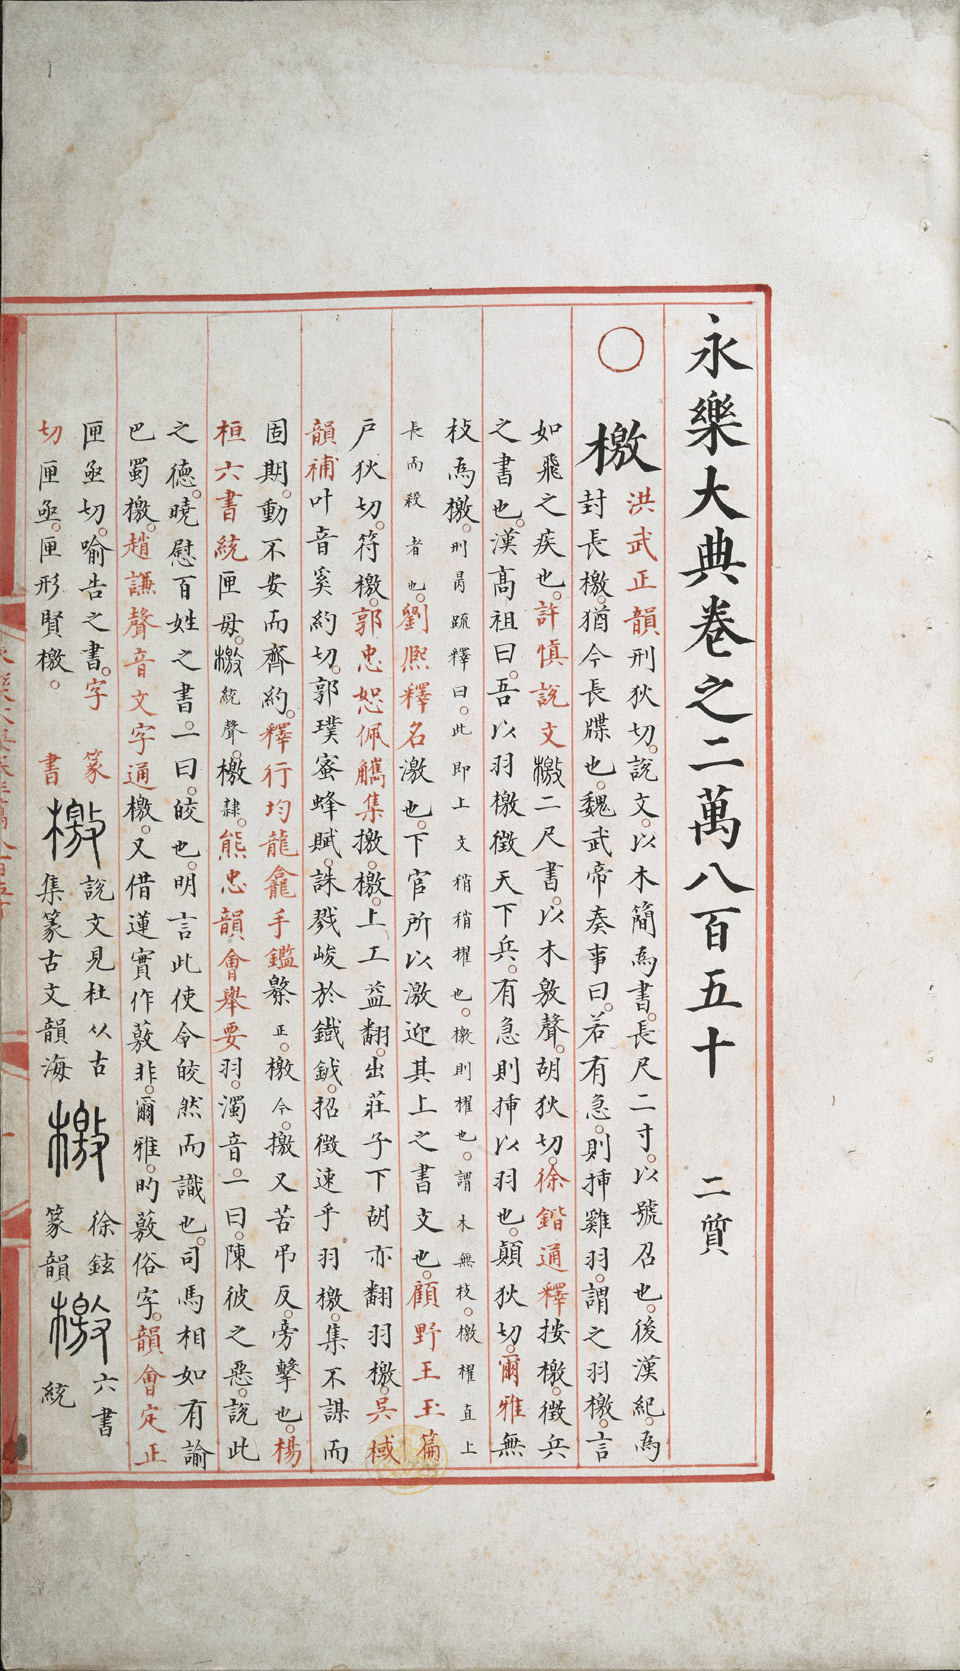 永樂大典卷之二萬八百五十 二質
○檄
洪武正韻刑狄切。說文。以木簡為書。長尺二寸。以號召也。後漢紀。為
封長檄。猶今長牒也。魏武帝奏事曰。若有急。則揷雞羽。謂之羽檄。言
如飛之疾也。許愼說文檄二尺書。以木敫聲。胡狄切。徐鍇通釋按檄。徵兵
之書也。漢髙祖曰。吾以羽檄徵天下兵。有急則揷以羽也。顛狄切。爾雅無
枝為檄。刑昺疏釋曰。此即上文梢梢擢也。檄則擢也。謂木無枝。檄擢直上
長而殺者也。劉熈釋名激也。下官所以激迎其上之書文也。顧野王玉篇
戶狄切。符檄。郭忠恕佩觿集撽。檄。上工益翻。出莊子下胡亦翻羽檄。吳棫
韻補叶音奚約切。郭璞蜜蜂賦。誅戮峻於鐵鉞。招徵速乎羽檄。集不謀而
固期。動不安而齊約。釋行均龍龕手鑑檠正。檄今。撽又苦吊反。旁擊也。楊
桓六書統匣母。檄統聲。檄隸。熊忠韻會舉要羽。濁音。一曰。陳彼之惡。說此
之德。曉慰百姓之書。一曰。皎也。明言此使令皎然而識也。司馬相如有諭
巴蜀檄。趙謙聲音文字通檄。又借蓮實作蔜非。爾雅。旳蔜俗字。韻會定正
切匣亟。匣形賢檄。
匣亟切。喻告之書。字
篆
書
檄
說文見杜从古
集篆古文韻海
檄
徐鉉
篆韻
檄
六書
統